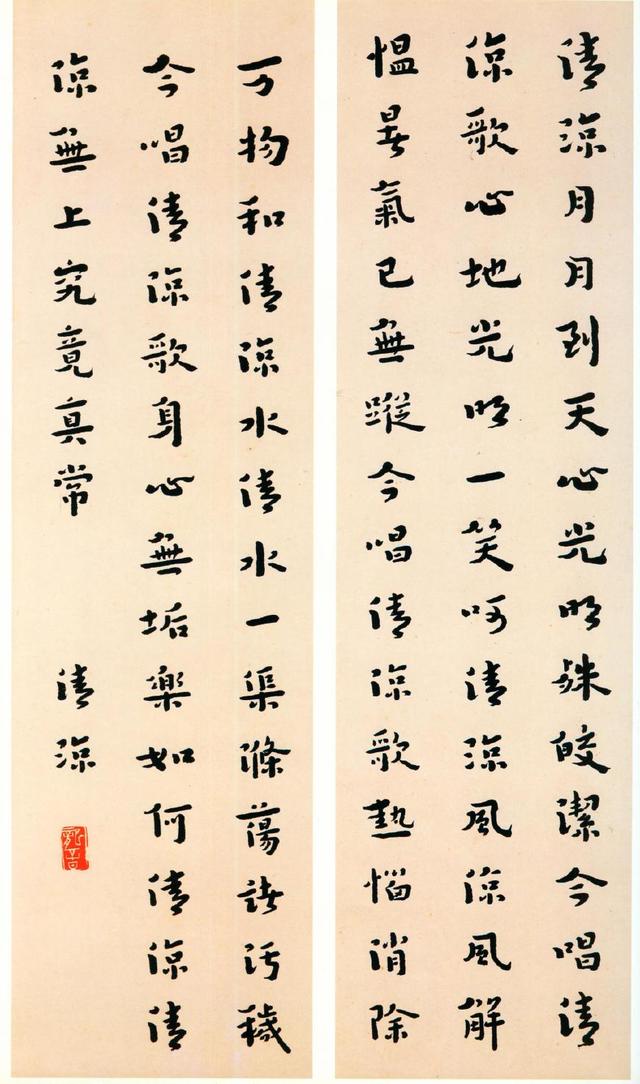 清涼月月到天心光明殊皎潔今唱清
涼歌心地光明一笑呵清涼風涼風解
愠暑氣已無蹤今唱清涼歌熱惱消除
万物和清涼水清水一渠滌蕩諸污穢
今唱清涼歌身心無垢樂如何清涼清
涼無上究竟真常
清涼